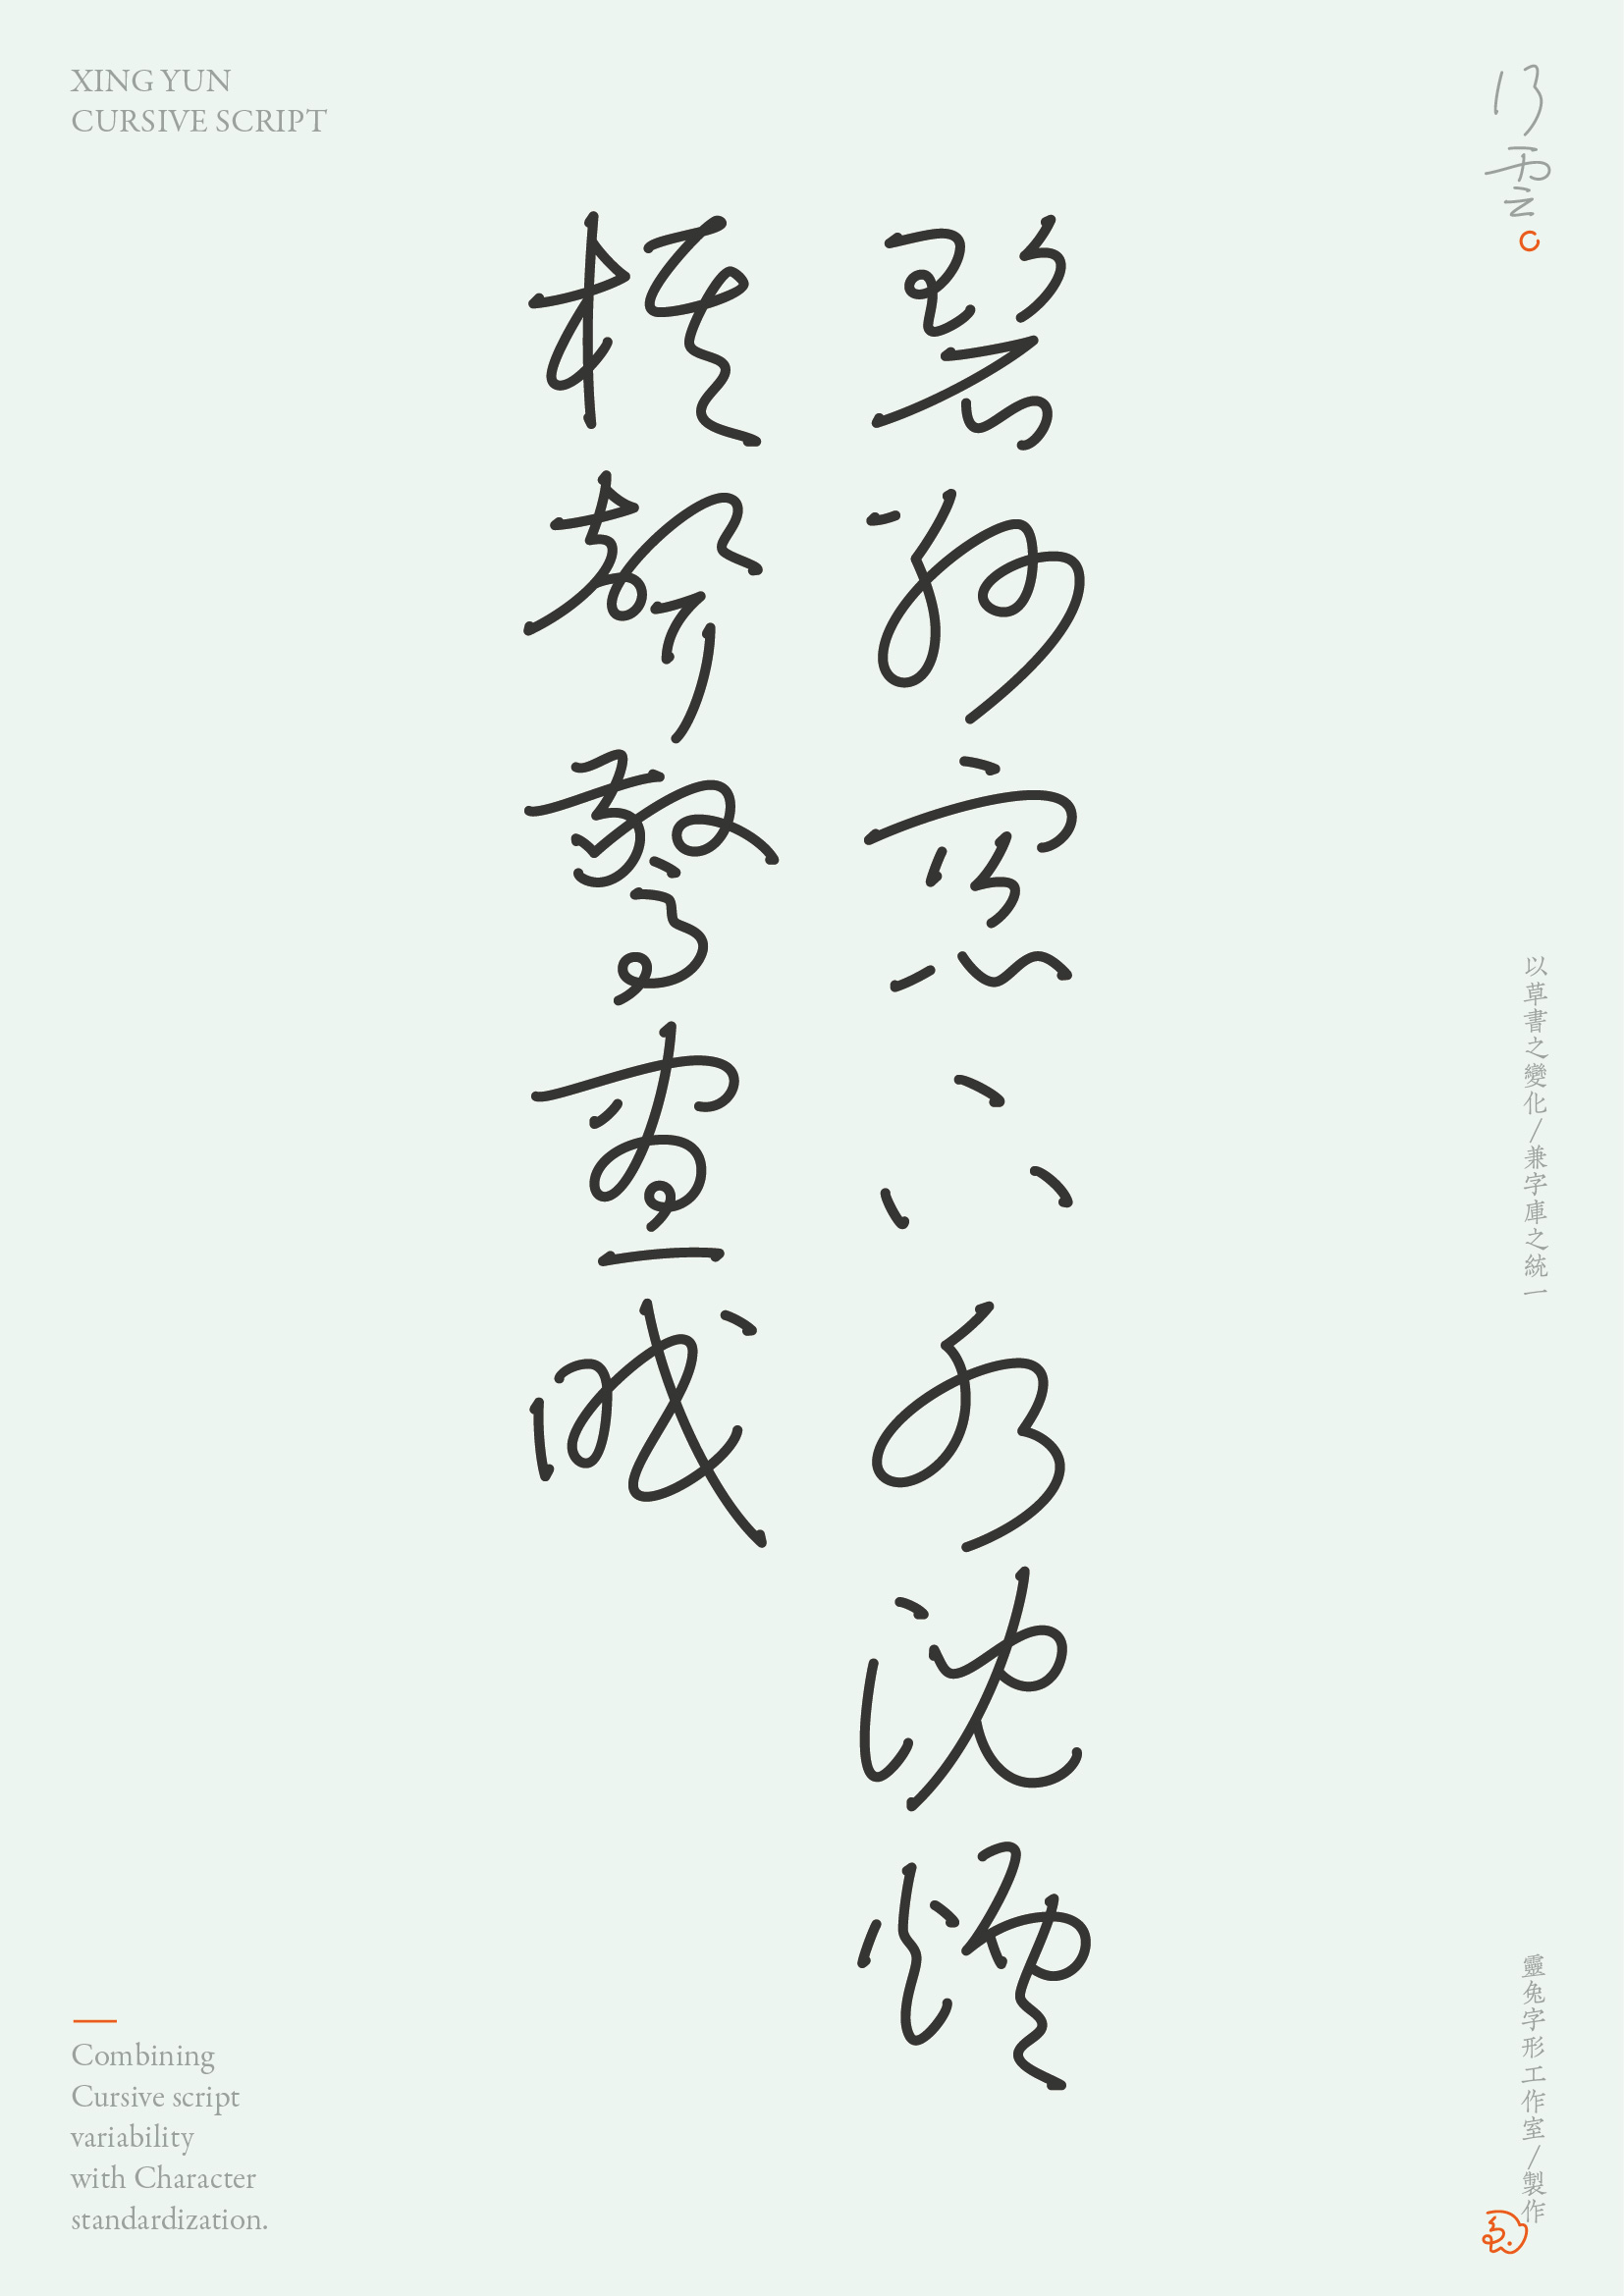 XING YUN
CURSIVE SCRIPT
行雲
碧紗窗下水沈煙
棋聲驚晝眠
以草書之變化/兼字庫之統一
靈兔字形工作室/製作
Combining
Cursive script
variability
with Character
standardization.